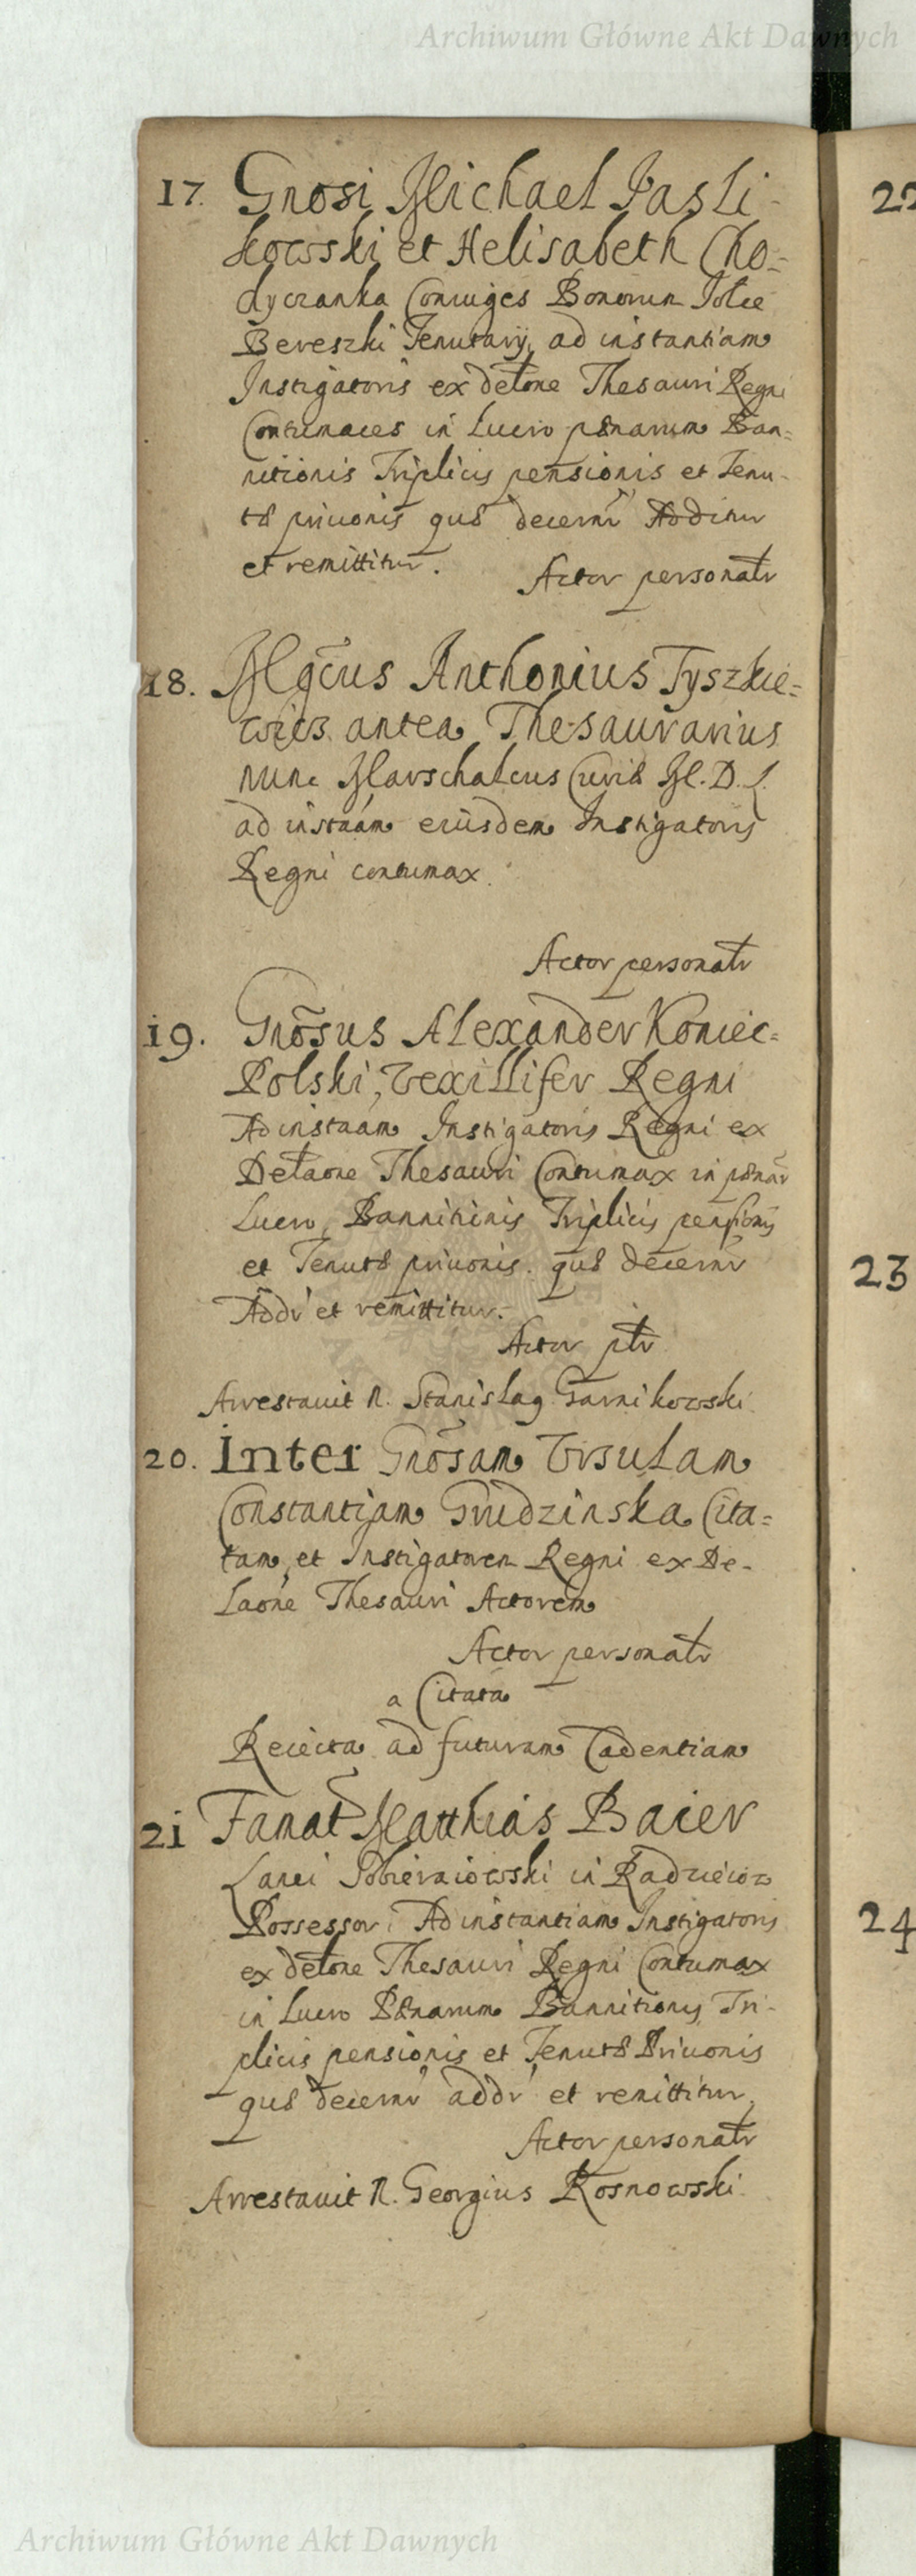 Archiwum Główne Akt Dawnych
17. Gnosi Michael Pasli-
kowski et Helisabeth Cho-
dyczanka Coniuges Bonorum
Bereszki Tenutarij, ad instantiam
Instigatoris ex delone Thesauri Regni
Contumaces in Lucro pænarum Ban-
nitionis Triplicis pensionis et Tenu-
tæ priuonis quæ decernr Additur
et remittitur.
Actor personalr
18. Mgcus Anthonius Tyszkie-
wicz antea Thesaurarius
nunc Marschalcus Curiæ M. D. L.
ad instaám eiusdem Instigatoris
Regni contumax.
Actor personalr
19. Gnosus Alexander Koniec-
Polski, Vexillifer Regni
Ad instaam Instigatoris Regni ex
Delaone Thesauri Contumax in pænar
Lucro, Bannitinis Triplicis pensionis
et Tenutæ priuonis. quæ decernr
Addr et remittitur.
Actor plr
Arrestauit N. Stanislaq Garnikowski
20. Inter Gnosam Vrsulam
Constantiam Grudzinska Cita-
tam, et Instigatorem Regni ex De-
laone Thesauri Actorem
Actor personalr
a Citata
Reiecta ad futuram Cadentiam
21 Famat Matthias Baier
Lanei in
Possessor Ad instantiam Instigatoris
ex delone Thesauri Regni Contumax
in Lucro Pænarum Bannitionis Tri-
plicis pensionis et Tenutæ Priuonis
quæ decernr addr et remittitur.
Actor personalr
Arrestauit N. Georgius Rosnowski.
22
23
24
Archiwum Główne Akt Dawnych